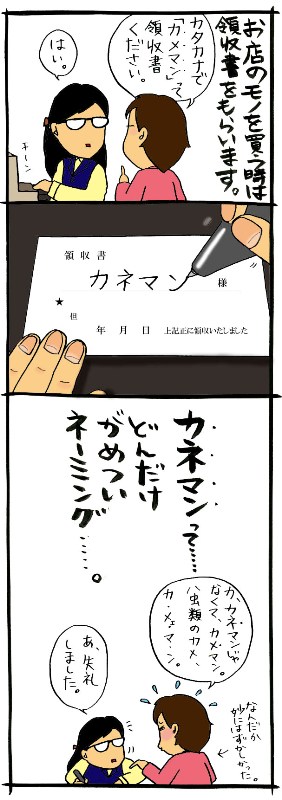 お店のモノを買う時は
領収書をもらいます。
カタカナで
「カメマン」って
領収書
ください。
はい。
チーン
領収書
カネマン 様
★
但
年 月 日 上記正に領収いたしました
カネマンって……
どんだけ
がめつい
ネーミング……。
カ、カネマンじゃ
なくて、カメマン。
ハ虫類のカメ、
カ・メ・マ・ン。
あ、失礼
しました。
なんだか
妙にはずかしかった。